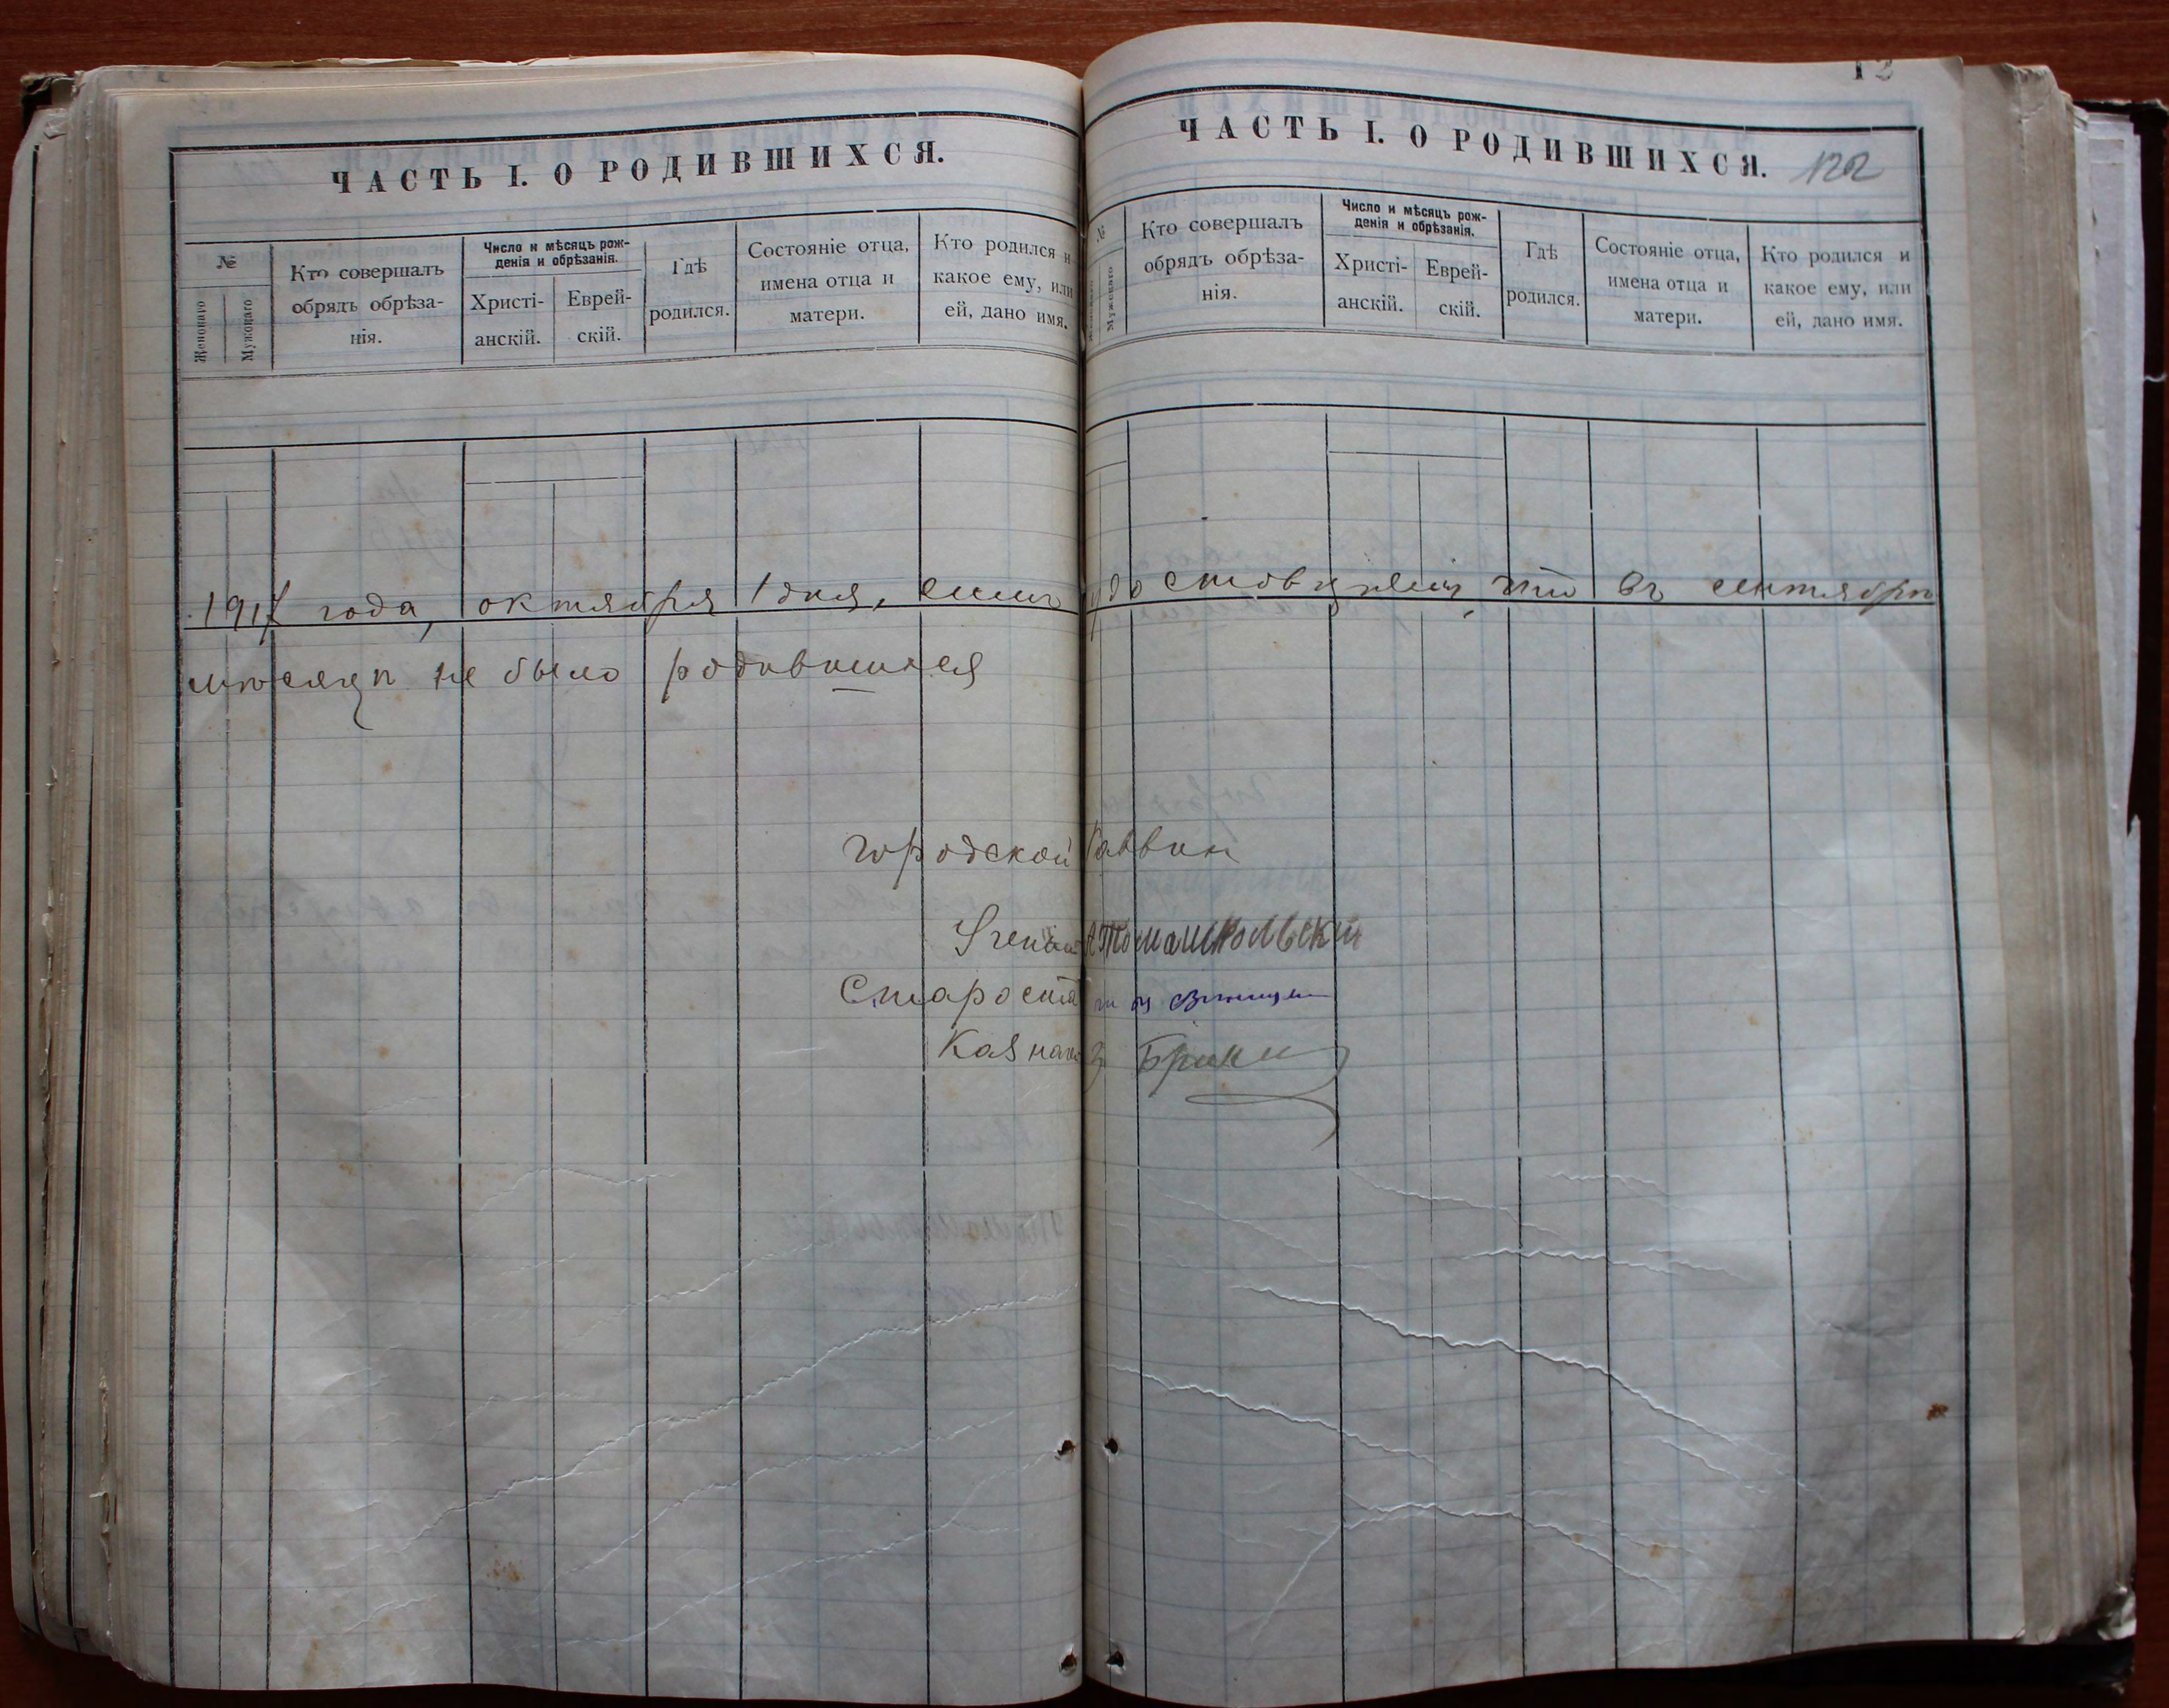 ЧАСТЬ I. О РОДИВШИХСЯ.
№
Женскаго
Мужскаго
Кто совершалъ
обрядъ обрѣза-
нія.
Число и мѣсяцъ рож-
денія и обрѣзанія.
Христі-
анскій.
Еврей-
скій.
Гдѣ
родился.
Состояніе отца,
имена отца и
матери.
Кто родился и
какое ему, или
ей, дано имя.
12
ЧАСТЬ I. О РОДИВШИХСЯ. 122
№
Женскаго
Мужскаго
Кто совершалъ
обрядъ обрѣза-
нія.
Число и мѣсяцъ рож-
денія и обрѣзанія.
Христі-
анскій.
Еврей-
скій.
Гдѣ
родился.
Состояніе отца,
имена отца и
матери.
Кто родился и
какое ему, или
ей, дано имя.
1917 года, октября 1 дня, симъ удостовѣряемъ, что въ сентябрѣ
мѣсяцѣ не было родившихся
Городской Раввинъ
Ученый Томашпольскій
Староста
Казначей